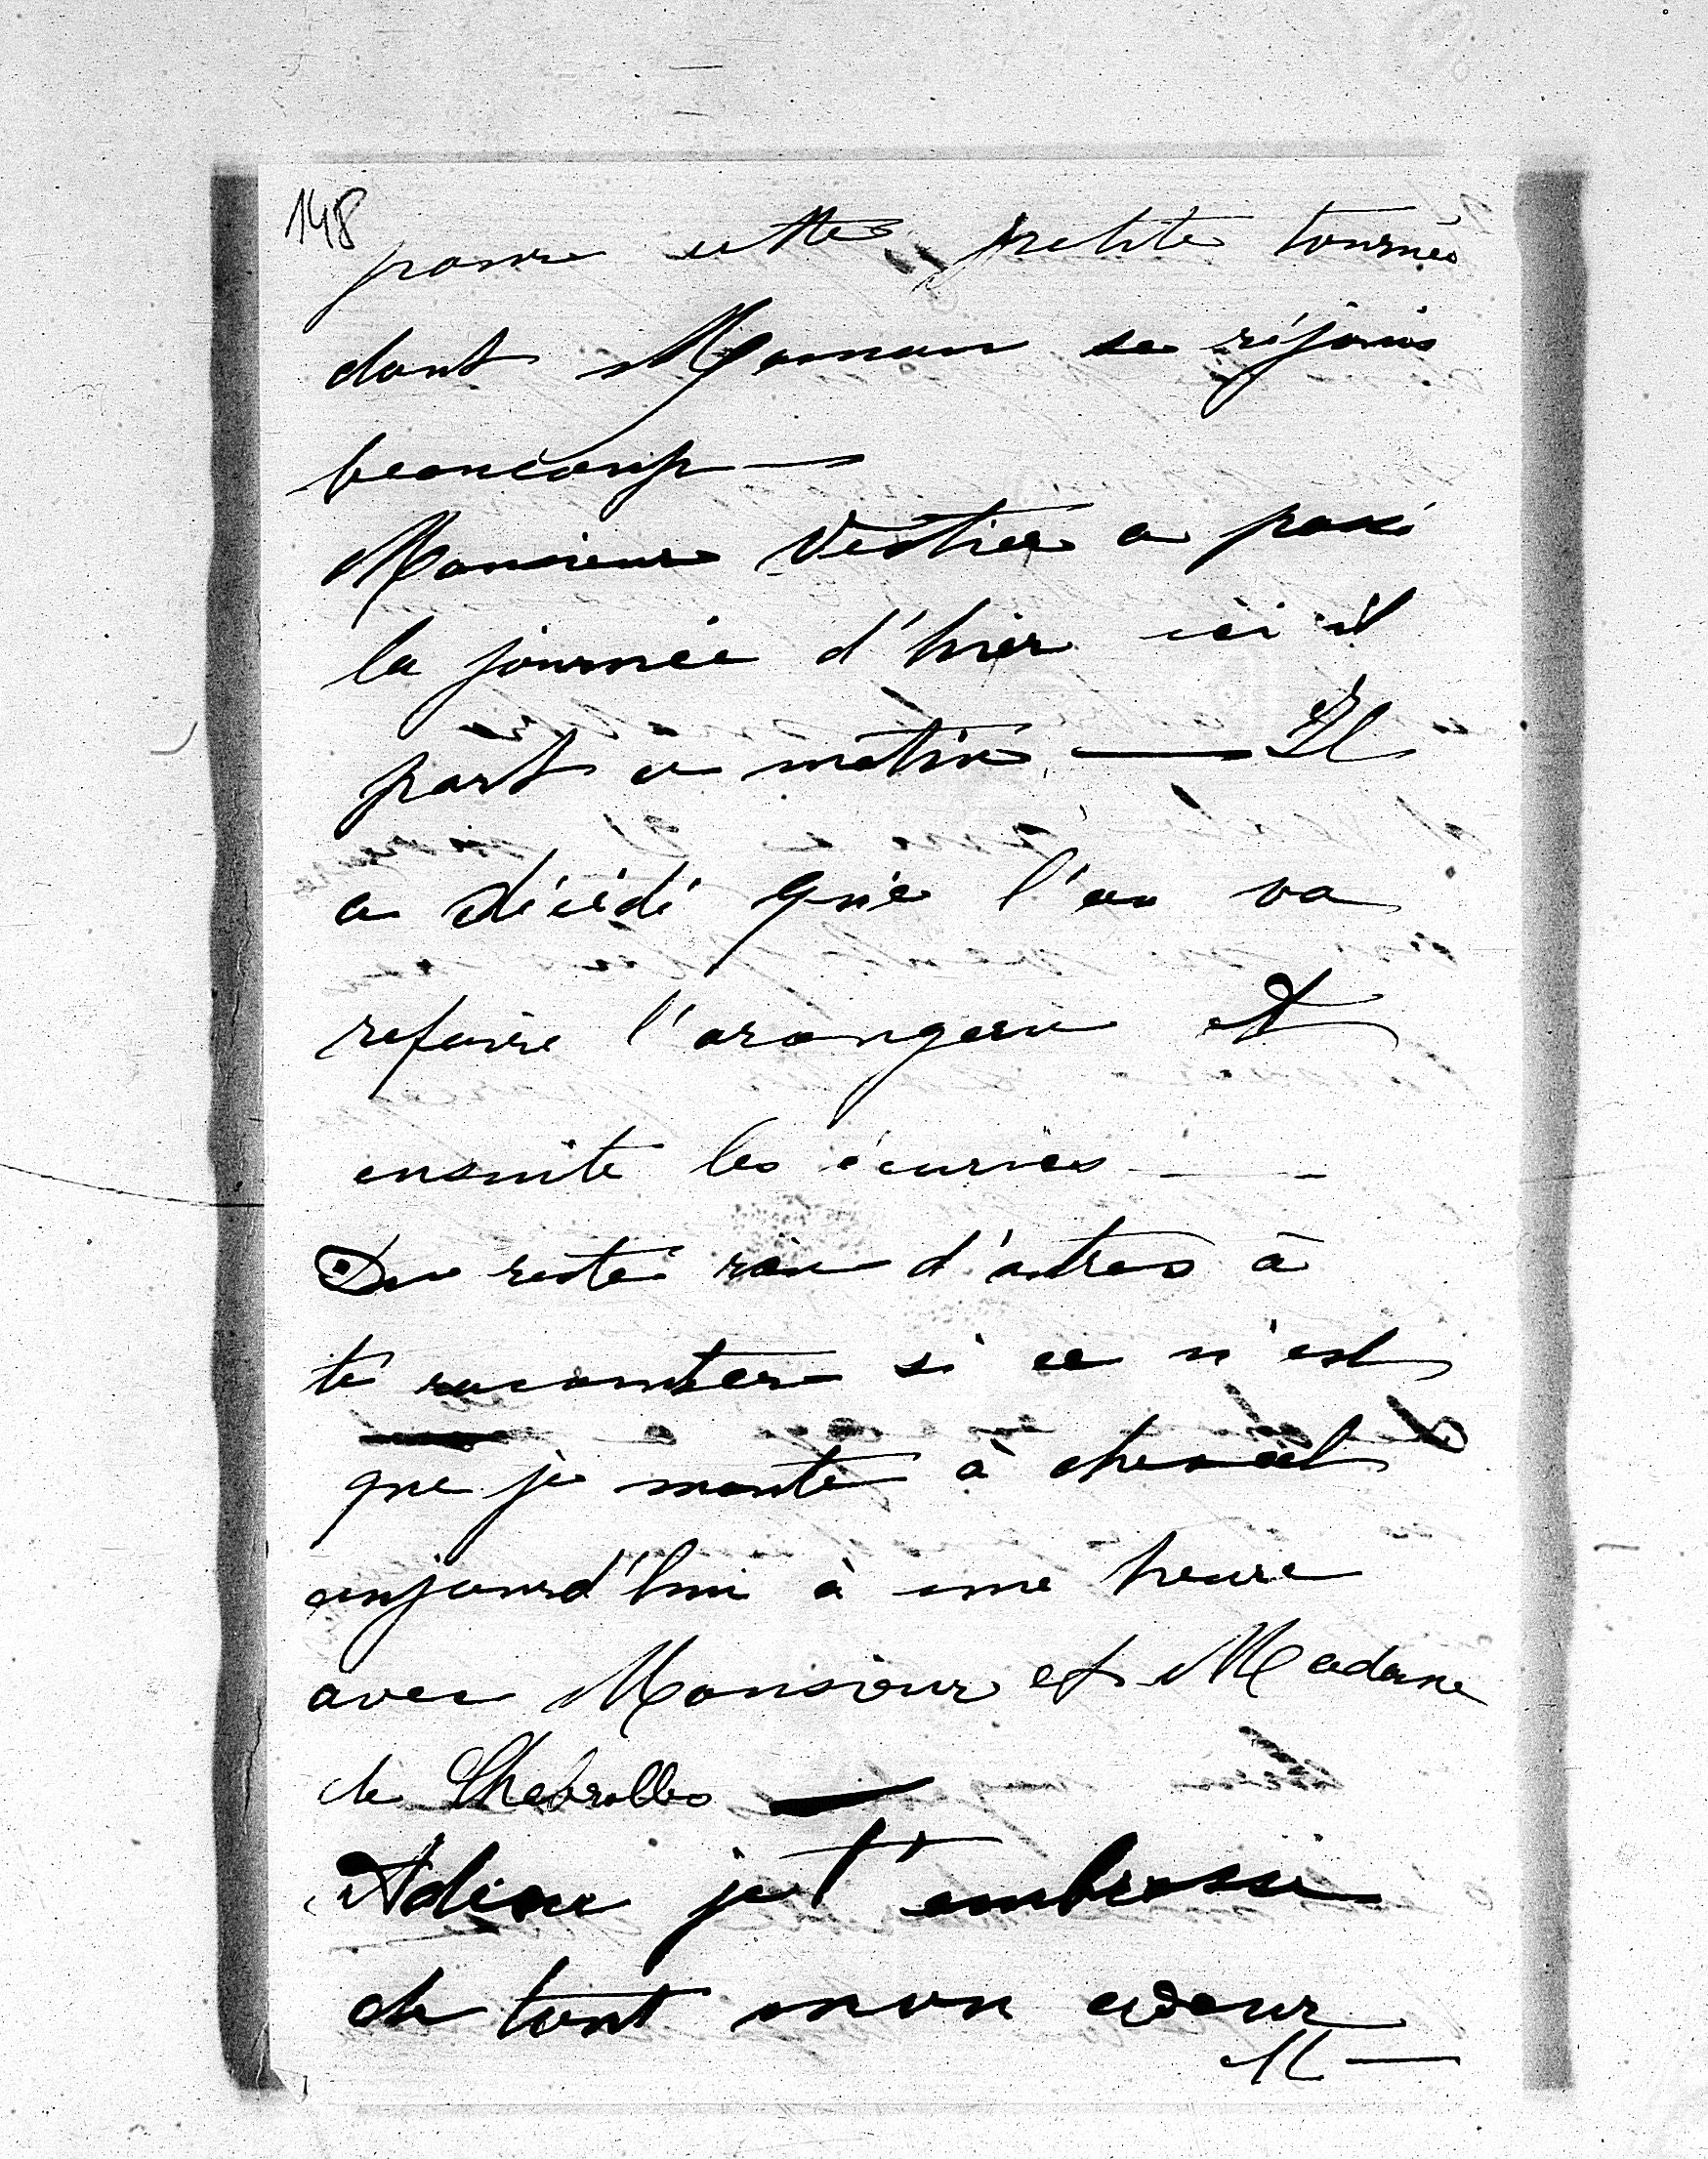 148
pour cette petite tournée
dont Maman se réjouis
beaucoup —
Monsieur Vestier a passé
la journée d'hier ici il
part ce matin — Il
a décidé que l'on va
refaire l'orangerie et
ensuite les écuries — —
Du reste rien d'autres à
te raconter si ce n'est
que je monte à cheval
aujourd'hui à une heure
avec Monsieur et Madame
de
Adieu je t'embrasse
de tout mon cœur
M —